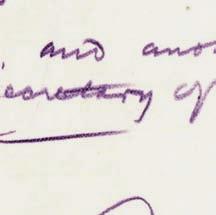 and ano
ecretary of